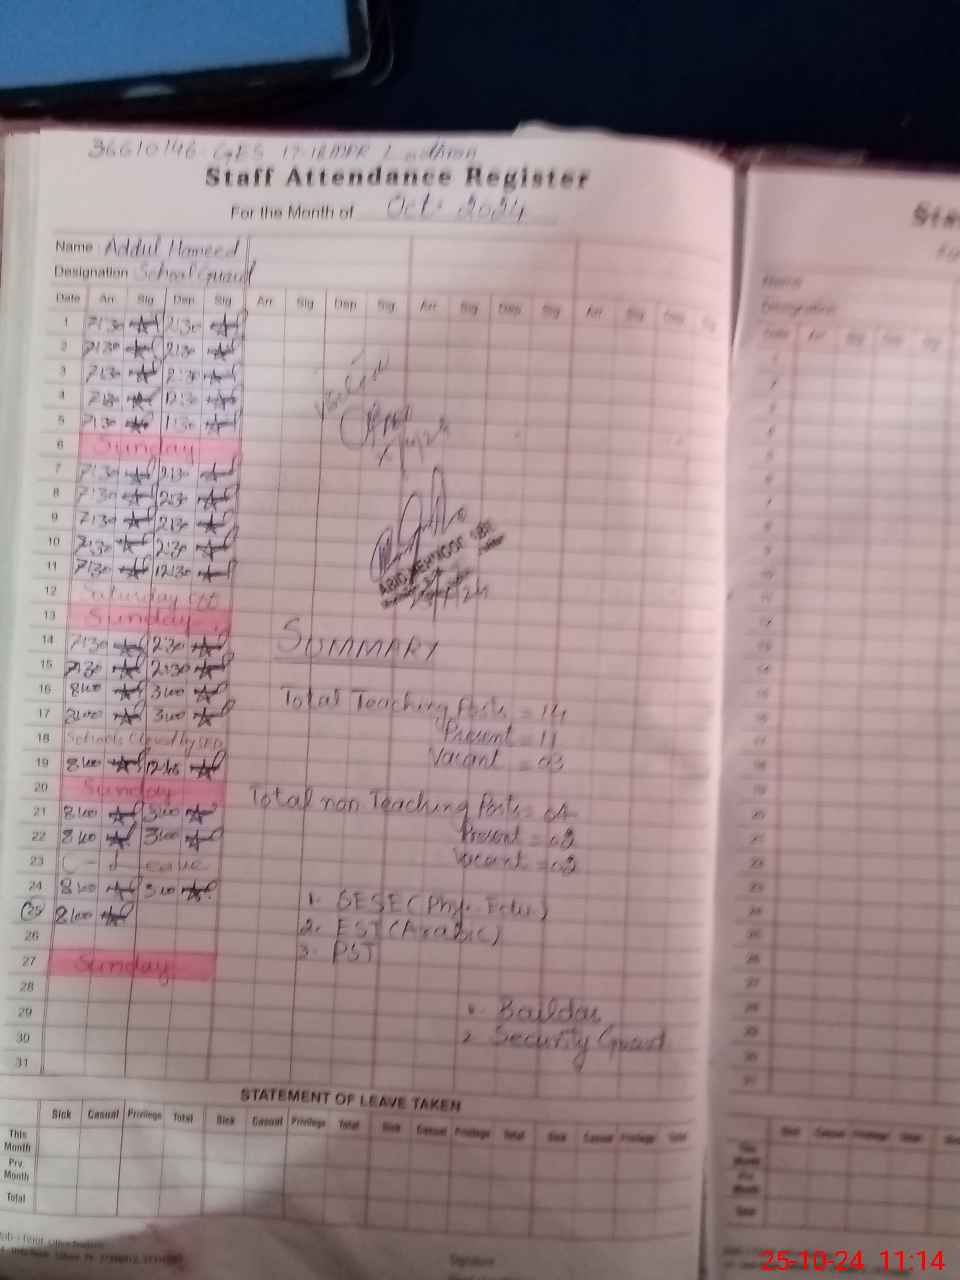 36610146 GES 17-18 MPR Lodhran
Staff Attendance Register
For the Month of Oct. 2024
Name Addul Hameed
Designation School Guard
Date Arr. Sig Dep. Sig Arr. Sig Dep Sig Arr Sig Dep Sig Arr Sig Dep Sig
1 7:30 2:30
2 7:30 2:30
3 7:30 2:30
4 7:30 12:30
5 7:30 1:30
6 Sunday
7 7:30 2:30
8 7:30 2:30
9 7:30 2:30
10 7:30 2:30
11 7:30 12:30
12 Saturday off
13 Sunday
14 7:30 2:30
15 7:30 2:30
16 8:00 3:00
17 8:00 3:00
18 Schools Closed by
19 8:00 12:45
20 Sunday
21 8:00 3:00
22 8:00 3:00
23 C-Leave
24 8:00 3:00
25 8:00
26
27 Sunday
28
29
30
31
SUMMARY
Total Teaching Posts = 14
Present = 11
Vacant = 03
Total non Teaching Posts = 04
Present = 02
Vacant = 02
1. SESE (Phy. Edu.)
2. EST (Arabic)
3. PST
1. Baildar
2. Security Guard
STATEMENT OF LEAVE TAKEN
Sick Casual Privilege Total Sick Casual Privilege Total Sick Casual Privilege Total Sick Casual Privilege Total
This Month
Prv. Month
Total
Signature
25-10-24 11:14